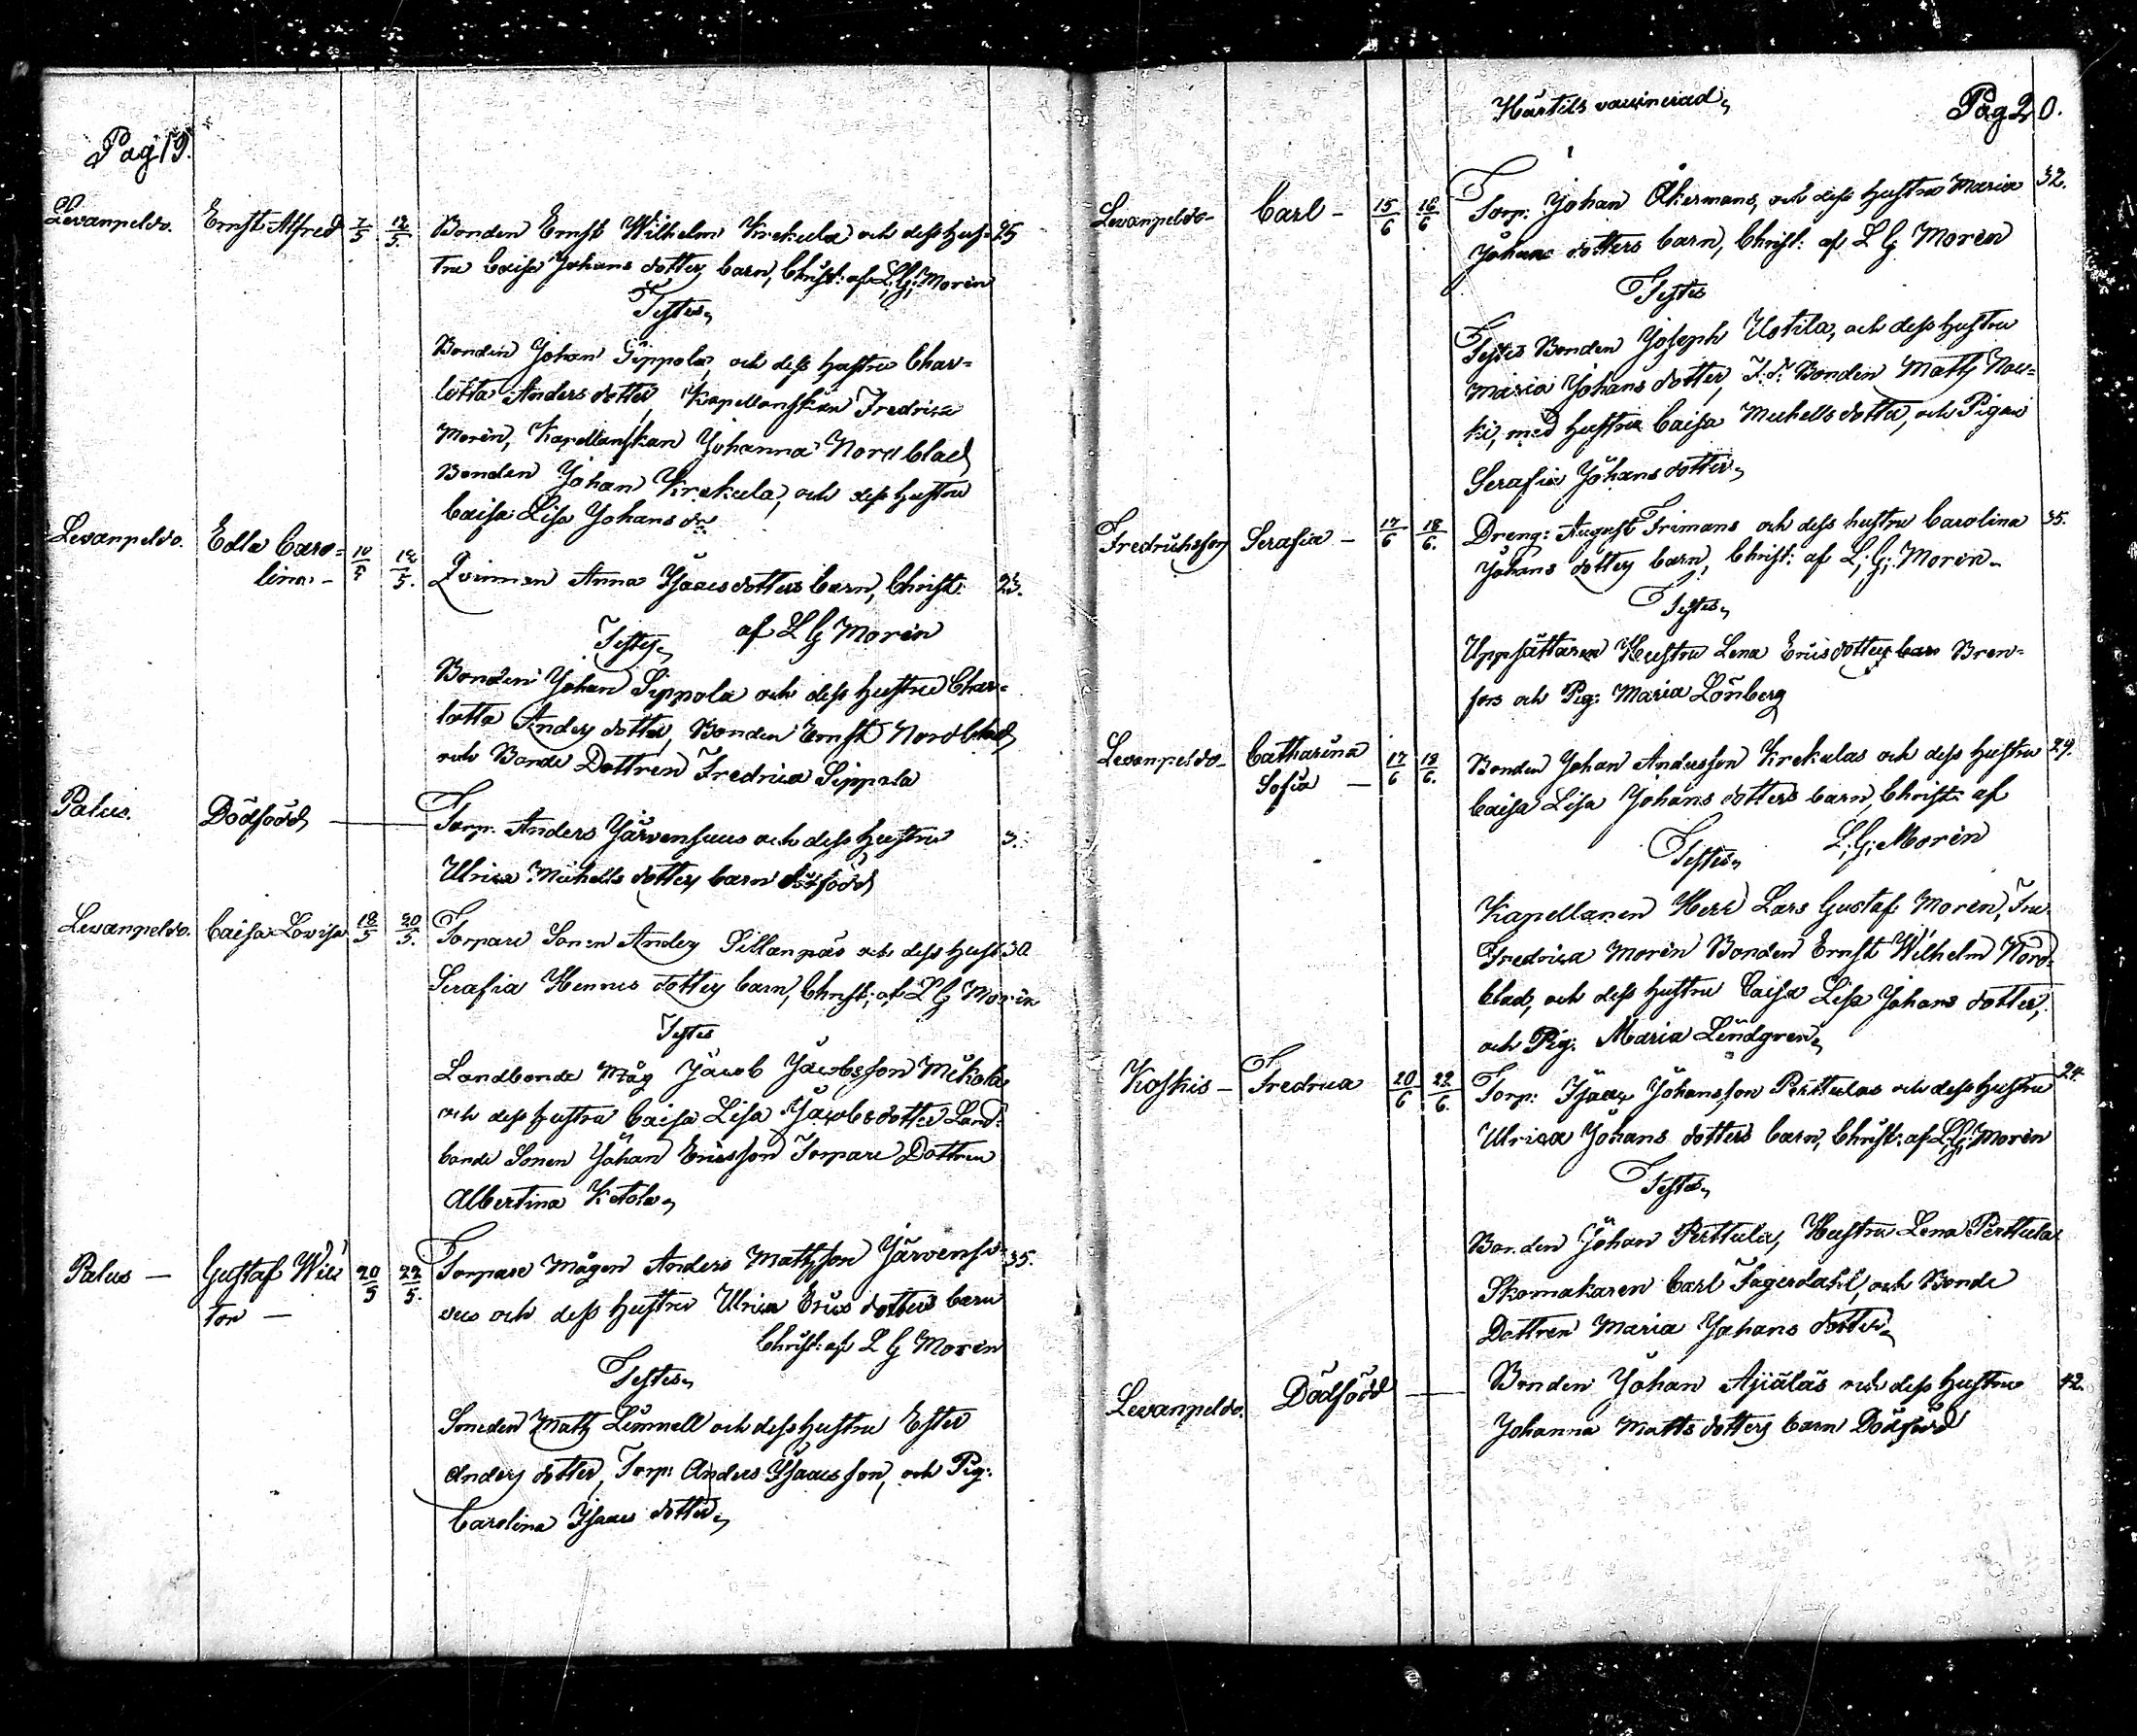 Pag 19.
Levanpeldo. Ernst Alfred 7/5 12/5. Bonden Ernst Wilhelm Krekula och dess Hus= 25
tru Caisa Johans dotters barn, Christ: af L; G; Morén
Testes,
Bonden Johan Sippola, och dess Hustru Char=
lotta Anders dotter, Kapellanskan Fredrica
Morén, Kapellanskan Johanna Nordblad
Bonden Johan Krekula, och dess Hustru
Caisa Lisa Johans dr
Levanpeldo. Edla Caro= 10/5 12/5. Qvinnan Anna Isaacs dotters barn, Christ: 23.
lina –
af L G Morén
Testes,
Bonden Johan Sippola och dess Hustru Char=
lotta Anders dotter, Bonden Ernst Nordblad
och Bonde Dottren Fredrica Sippola
Palus. Dödfödd — Torp. Anders Järvensuus och dess Hustru 3.
Ulrica Michells dotters barn dödfödd
Levanpeldo. Caisa Lovisa 18/5 20/5. Torpare Sonen Anders Sillanpäs och dess Hust 30
Serafia Henrics dotters barn, Christ; af L G Morén
Testes
Landbonde Måg Jacob Jacobsson Mikola,
och dess Hustru Caisa Lisa Jacobs dotter Land=
bonde Sonen Johan Ericsson Torpare Dottren
Albertina Ketola,
Palus — Gustaf Wic 20/5 22/5. Torpare Mågen Anders Mathsson Järvensi= 35.
tor —
vus och dess Hustru Ulrica Erics dotters barn
Christ: af L G Morén
Testes,
Smeden Math Limnell och dess Hustru Ester
Anders dotter, Torp: Anders Isaacsson, och Pig:
Carolina Isaacs dotter,
Hartils vaccinerad,
Pag 20.
Levanpeldo – Carl – 15/6 16/6 Torp: Johan Åkermans, och dess Hustru Maria 32.
Johans dotters barn, Christ: af L G Morén
Testes
Testes Bonden Joseph Uotila, och dess Hustru
Maria Johans dotter, F. d. Bonden Matts Nou=
ki, med Hustru Caisa Michells dotter, och Pigan
Serafia Johans dotter,
Fredrichsfors Serafia – 17/6 18/6. Dreng: August Frimans och dess hustru Carolina 35.
Johans dotters barn, Christ: af L; G; Morén.
Testes,
Uppsättaren Hustru Lena Erics dotter Bren=
fors och Pig: Maria Lönberg
Levanpeldo – Catharina 17/6 18/6. Bonden Johan Andersson Krekulas och dess Hustru 29.
Sofia —
Caisa Lisa Johans dotters barn, Christ: af
L; G; Morén
Testes,
Kapellanen Herr Lars Gustaf Morén, Fru
Fredrica Morén Bonden Ernst Wilhelm Nord=
blad, och dess Hustru Caisa Lisa Johans dotter,
och Pig. Maria Lindgren,
Koskis – Fredrica 20/6 22/6. Torp: Isaac Johansson Perttulas och dess Hustru 24.
Ulrica Johans dotters barn, Christ: af L; G; Morén
Testes,
Bonden Johan Perttula, Hustru Lena Perttula
Skomakaren Carl Fagerdahl, och Bonde
Dottren Maria Johans dotter,
Levanpeldo. Dödfödd — Bonden Johan Äijäläs och dess Hustru 42.
Johanna Matts dotters barn Dödfödd